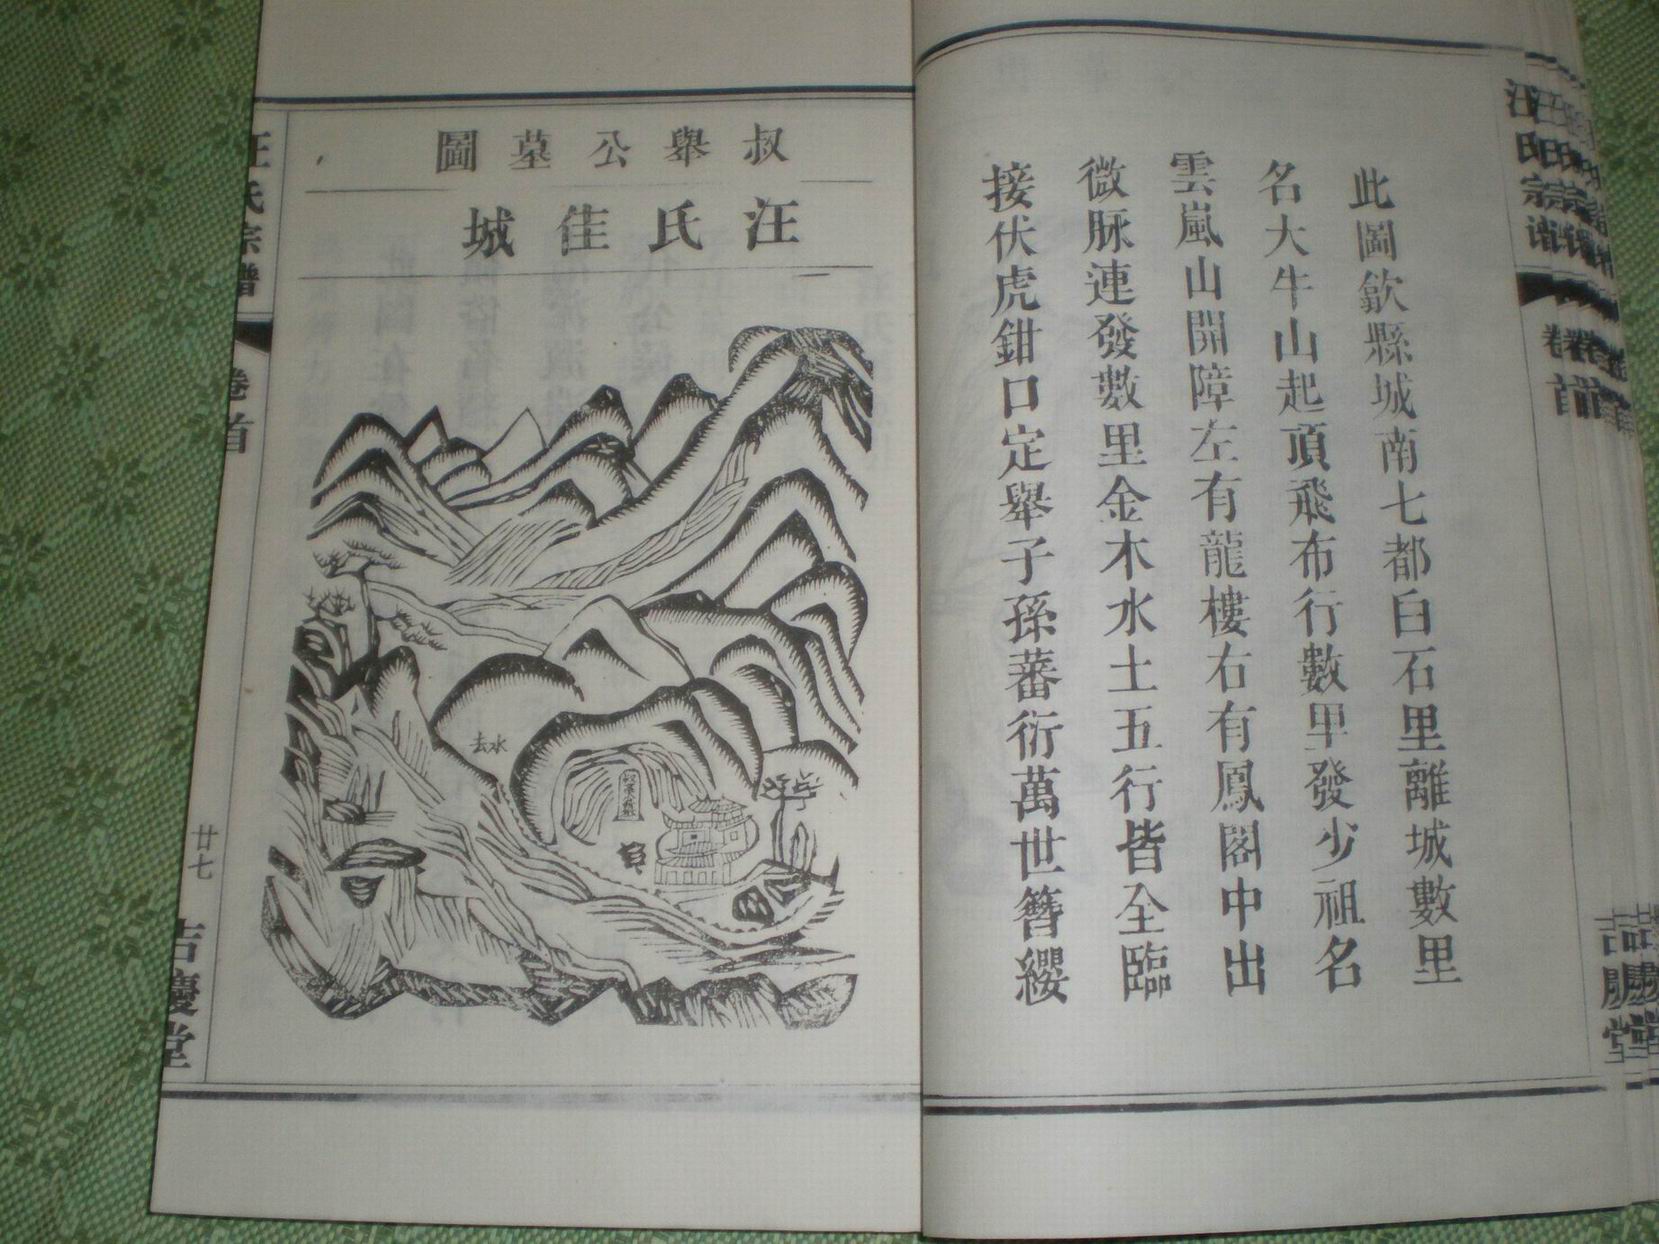 此圖歙縣城南七都白石里離城數里
名大牛山起頂飛布行數里發少祖名
雲嵐山開障左有龍樓右有鳳閣中出
微脉連發數里金木水土五行皆全臨
接伏虎鉗口定舉子孫蕃衍萬世簪纓
汪氏宗譜
卷首
叔舉公墓圖
汪氏佳城
去水
汪氏宗譜
卷首
廿七
吉慶堂